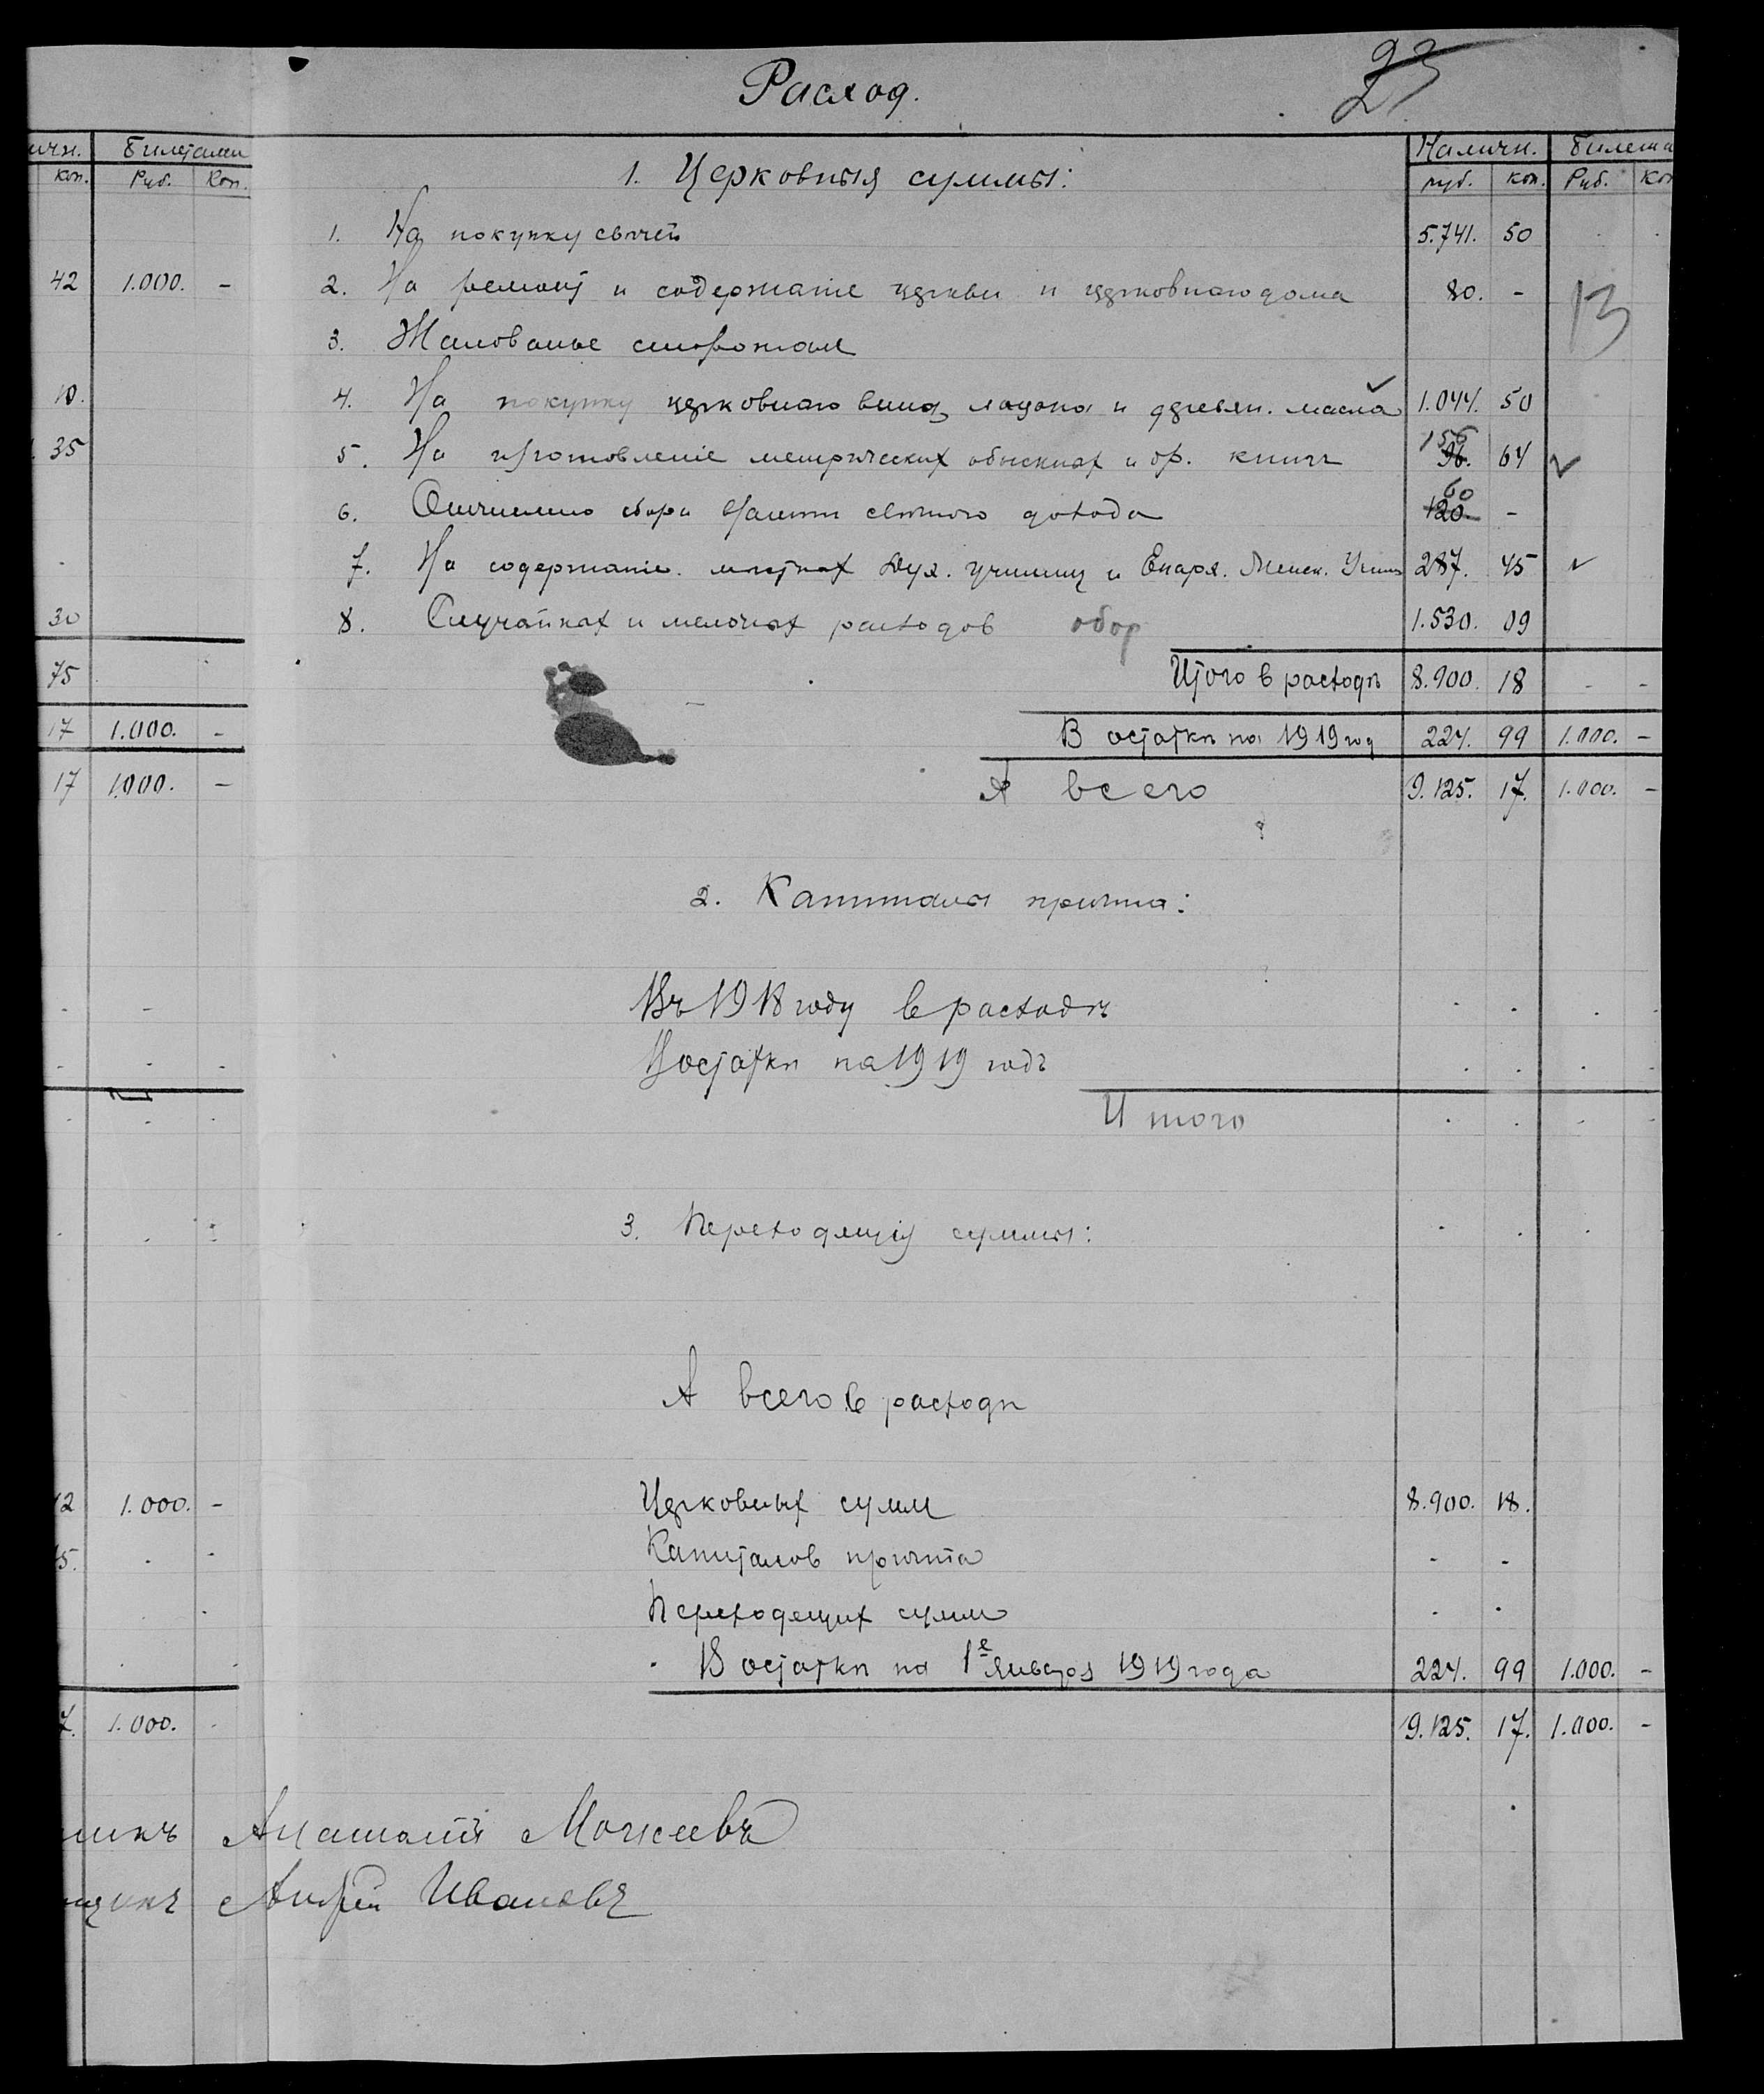 Расход.
23
ичн. Билетами
Коп. Руб. Коп.
Наличн. Билета
руб. коп. Руб. Коп
1. Церковныя суммы:
1. На покупку свечей 5.741. 50
42 1.000. -
2. На ремонт и содержаніе церкви и церковнаго дома 80. -
13
3. Жалованье сторожам
10.
4. На покупку церковнаго вина, ладона и деревян. масла 1.044. 50
35
5. На изготовленіе метрических обыскных и др. книгъ 156 96. 64
6. Отчислено сбора взамен свечного дохода 60 120. -
7. На содержаніе местных Дух. училищ и Епарх. Женск. Учил 287. 45
30
8. Случайных и мелочных расходов обор 1.530. 09
75
Итого в расходе 8.900. 18 - -
17 1.000. -
В остатке на 1919 год 224. 99 1.000. -
17 1.000. -
А всего 9.125. 17. 1.000. -
2. Капиталы причта:
Въ 1918 году в расходе
В остатке на 1919 годъ
Итого
3. Переходящія суммы:
А всего в расходе
12 1.000. -
Церковных сумм 8.900. 18.
5.
Капиталов причта - -
Переходящих сумм
В остатке на 1е января 1919 года 224. 99 1.000. -
7. 1.000.
9.125. 17. 1.000. -
Анатолій Моисеевъ
Андрей Ивановъ